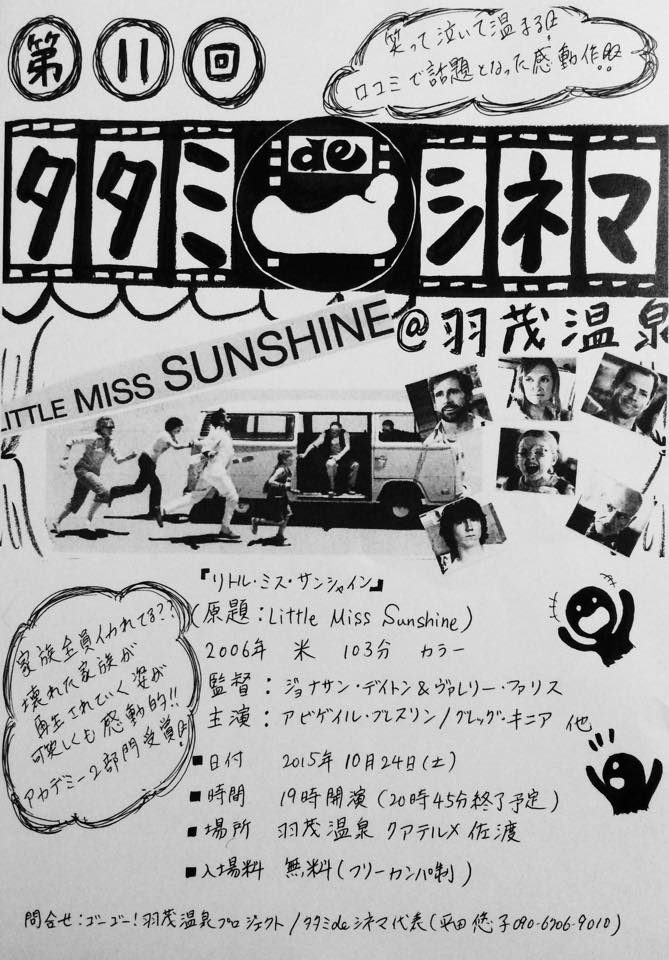 第11回
笑って泣いて温まる!!
口コミで話題となった感動作!!
タタミ de シネマ
@羽茂温泉
LITTLE MISS SUNSHINE
『リトル・ミス・サンシャイン』
(原題：Little Miss Sunshine)
2006年 米 103分 カラー
監督：ジョナサン・デイトン&ヴァレリー・ファリス
主演：アビゲイル・ブレスリン/グレッグ・キニア 他
家族全員イカれてる??
壊れた家族が
再生されていく姿が
可笑しくも感動的!!
アカデミー2部門受賞!!
■日付 2015年10月24日(土)
■時間 19時開演(20時45分終了予定)
■場所 羽茂温泉 クアテルメ佐渡
■入場料 無料(フリーカンパ制)
問合せ：ゴーゴー!羽茂温泉プロジェクト/タタミdeシネマ代表(平田 悠子 090-6706-9010)